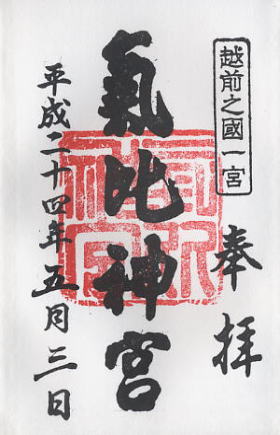 越前之國一宮
奉拝
氣比神宮
平成二十四年五月三日